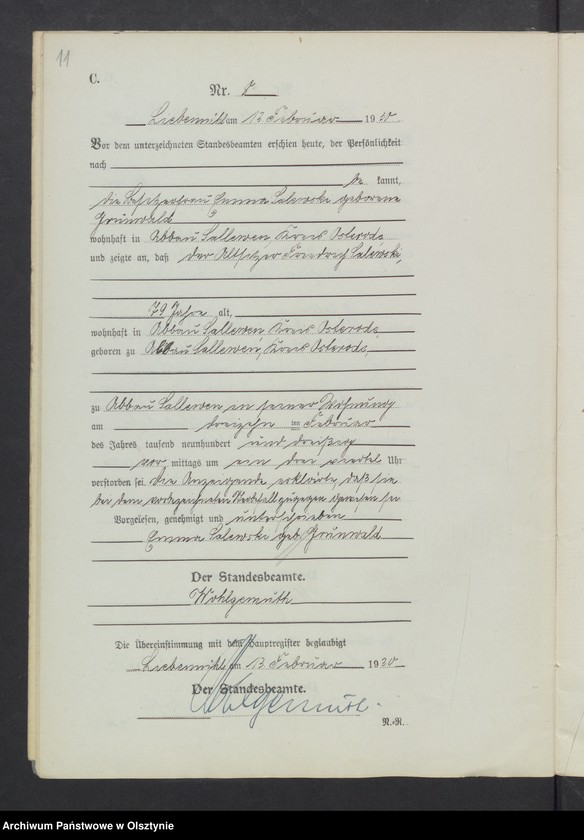 11
C.
Nr. 8
Liebemühl am 13 Februar 1930
Vor dem unterzeichneten Standesbeamten erschien heute, der Persönlichkeit
nach
be kannt,
die Besitzerfrau Emma Salewski geborene
Grünwald
wohnhaft in Abbau Sallewen, Kreis Osterode
und zeigte an, daß der Altsitzer Friedrich Salewski,
79 Jahre alt,
wohnhaft in Abbau Sallewen Kreis Osterode,
geboren zu Abbau Sallewen, Kreis Osterode,
zu Abbau Sallewen in seiner Wohnung
am dreizehn ten Februar
des Jahres tausend neunhundert und dreißig
vor mittags um ein drei viertel Uhr
verstorben sei. Die Anzeigende erklärte, daß sie
bei dem vorbezeichneten Sterbefall zugegen gewesen sei
Vorgelesen, genehmigt und unterschrieben
Emma Salewski geb. Grünwald
Der Standesbeamte.
Wohlgemuth
Die Übereinstimmung mit dem Hauptregister beglaubigt
Liebemühl am 13 Februar 1930
Der Standesbeamte.
Wohlgemuth.
N.-R.
Archiwum Państwowe w Olsztynie